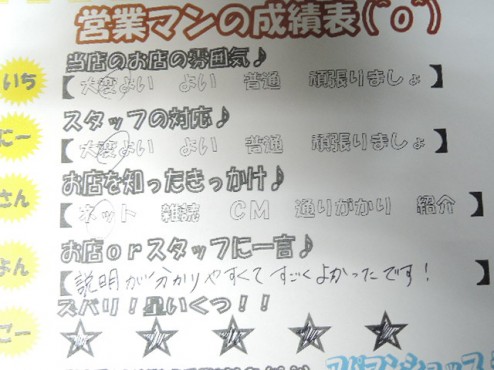 営業マンの成績表(^o^)
いち 当店のお店の雰囲気♪
【 大変よい よい 普通 頑張りましょ 】
にー スタッフの対応♪
【 大変よい よい 普通 頑張りましょ 】
さん お店を知ったきっかけ♪
【 ネット 雑誌 CM 通りがかり 紹介 】
よん お店orスタッフに一言♪
【 説明が分かりやすくてすごくよかったです! 】
ごー ズバリ!星いくつ!!
★ ★ ★ ★ ★